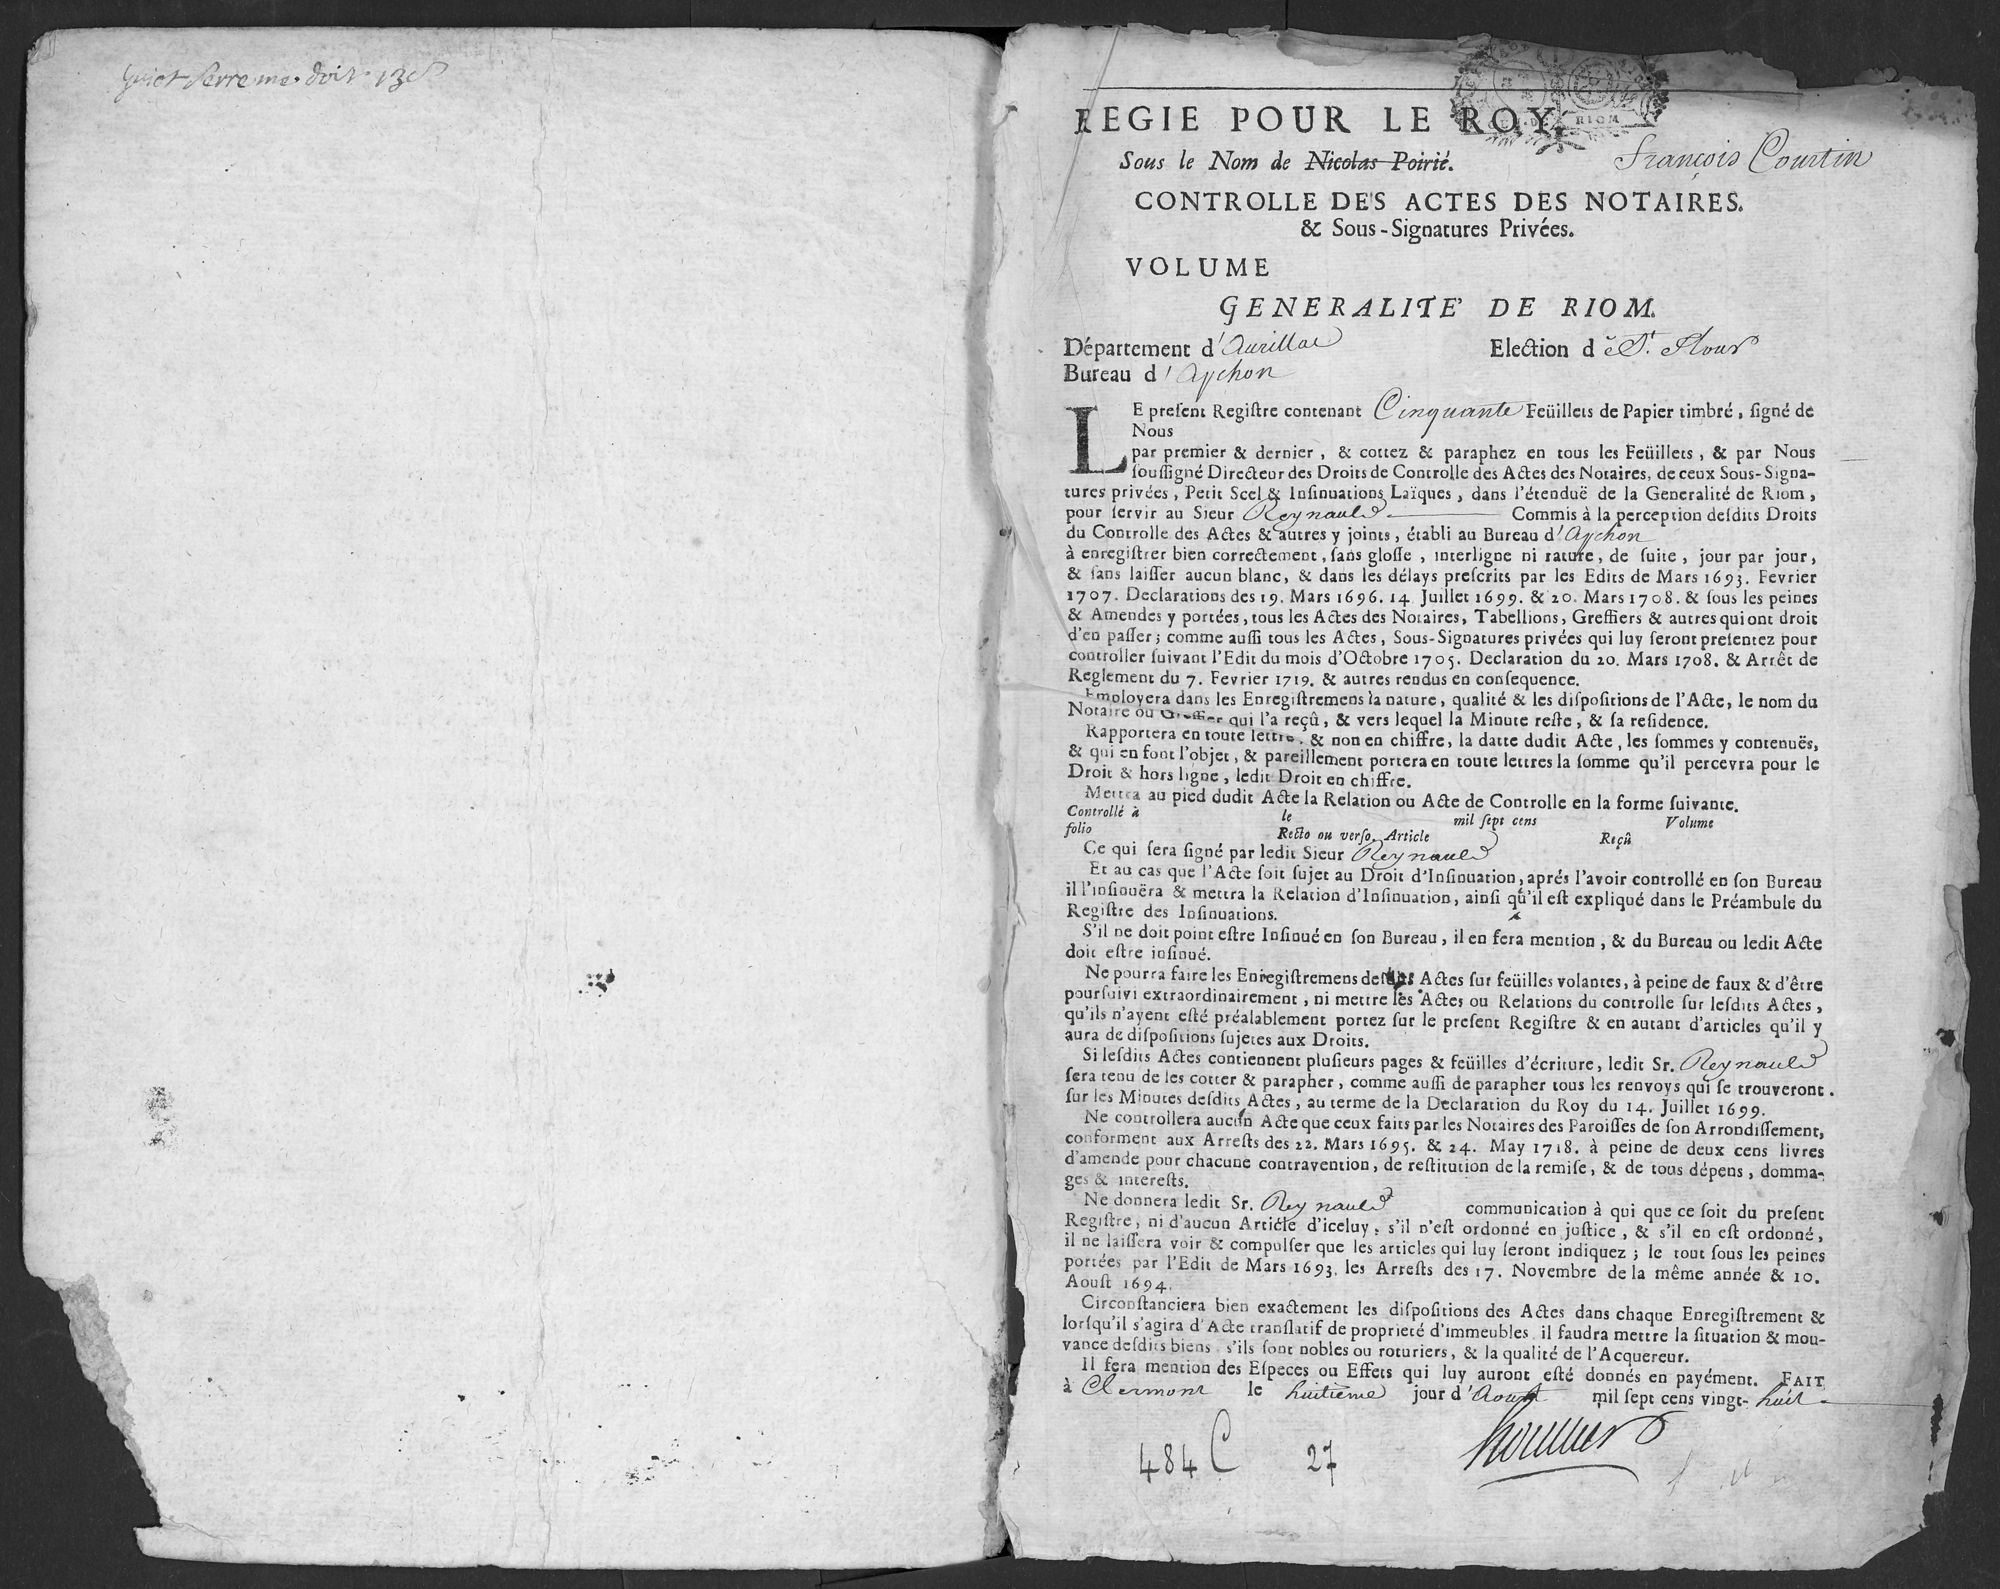 Guiot Serre me doit 13
REGIE POUR LE ROY,
RIOM
Sous le Nom de Nicolas Poirié. François Courtin
CONTROLLE DES ACTES DES NOTAIRES.
& Sous-Signatures Privées.
VOLUME
GENERALITE' DE RIOM.
Département d'Aurillac Election de St. Flour
Bureau d'Apchon
LE preſent Regiſtre contenant Cinquante Feüillets de Papier timbré, ſigné de
Nous
par premier & dernier, & cottez & paraphez en tous les Feüillets, & par Nous
ſouſſigné Directeur des Droits de Controlle des Actes des Notaires, de ceux Sous-Signa-
tures privées, Petit Scel & Inſinuations Laïques, dans l'étenduë de la Generalité de Riom,
pour ſervir au Sieur Reynauld Commis à la perception deſdits Droits
du Controlle des Actes & autres y joints, établi au Bureau d'Apchon
à enregiſtrer bien correctement, ſans gloſſe, interligne ni rature, de ſuite, jour par jour,
& ſans laiſſer aucun blanc, & dans les délays preſcrits par les Edits de Mars 1693. Fevrier
1707. Declarations des 19. Mars 1696. 14. Juillet 1699. & 20. Mars 1708. & ſous les peines
& Amendes y portées, tous les Actes des Notaires, Tabellions, Greffiers & autres qui ont droit
d'en paſſer; comme auſſi tous les Actes, Sous-Signatures privées qui luy ſeront preſentez pour
controller ſuivant l'Edit du mois d'Octobre 1705. Declaration du 20. Mars 1708. & Arrêt de
Reglement du 7. Fevrier 1719. & autres rendus en conſequence.
Employera dans les Enregiſtremens la nature, qualité & les diſpoſitions de l'Acte, le nom du
Notaire ou Greffier qui l'a reçû, & vers lequel la Minute reſte, & ſa reſidence.
Rapportera en toute lettre, & non en chiffre, la datte dudit Acte, les ſommes y contenuës,
& qui en font l'objet, & pareillement portera en toute lettres la ſomme qu'il percevra pour le
Droit & hors ligne, ledit Droit en chiffre.
Mettra au pied dudit Acte la Relation ou Acte de Controlle en la forme ſuivante.
Controllé à le mil ſept cens Volume
folio Recto ou verſo. Article Reçû
Ce qui ſera ſigné par ledit Sieur Reynauld
Et au cas que l'Acte ſoit ſujet au Droit d'Inſinuation, aprés l'avoir controllé en ſon Bureau
il l'inſinuëra & mettra la Relation d'Inſinuation, ainſi qu'il eſt expliqué dans le Préambule du
Regiſtre des Inſinuations.
S'il ne doit point eſtre Inſinué en ſon Bureau, il en fera mention, & du Bureau ou ledit Acte
doit eſtre inſinué.
Ne pourra faire les Enregiſtremens deſdits Actes ſur feüilles volantes, à peine de faux & d'être
pourſuivi extraordinairement, ni mettre les Actes ou Relations du controlle ſur leſdits Actes,
qu'ils n'ayent eſté préalablement portez ſur le preſent Regiſtre & en autant d'articles qu'il y
aura de diſpoſitions ſujetes aux Droits.
Si leſdits Actes contiennent pluſieurs pages & feüilles d'écriture, ledit Sr. Reynauld
ſera tenu de les cotter & parapher, comme auſſi de parapher tous les renvoys qui ſe trouveront
ſur les Minutes deſdits Actes, au terme de la Declaration du Roy du 14. Juillet 1699.
Ne controllera aucun Acte que ceux faits par les Notaires des Paroiſſes de ſon Arrondiſſement,
conforment aux Arreſts des 22. Mars 1695. & 24. May 1718. à peine de deux cens livres
d'amende pour chacune contravention, de reſtitution de la remiſe, & de tous dépens, domma-
ges & intereſts.
Ne donnera ledit Sr. Reynauld communication à qui que ce ſoit du preſent
Regiſtre, ni d'aucun Article d'iceluy, s'il n'eſt ordonné en juſtice, & s'il en eſt ordonné,
il ne laiſſera voir & compulſer que les articles qui luy ſeront indiquez; le tout ſous les peines
portées par l'Edit de Mars 1693. les Arreſts des 17. Novembre de la même année & 10.
Aouſt 1694.
Circonſtanciera bien exactement les diſpoſitions des Actes dans chaque Enregiſtrement &
lorſqu'il s'agira d'Acte tranſlatif de proprieté d'immeubles, il faudra mettre la ſituation & mou-
vance deſdits biens, s'ils ſont nobles ou roturiers, & la qualité de l'Acquereur.
Il fera mention des Eſpeces ou Effets qui luy auront eſté donnés en payément. FAIT
à Clermont le huitième jour d'Aoust mil ſept cens vingt-huit
484 C 27